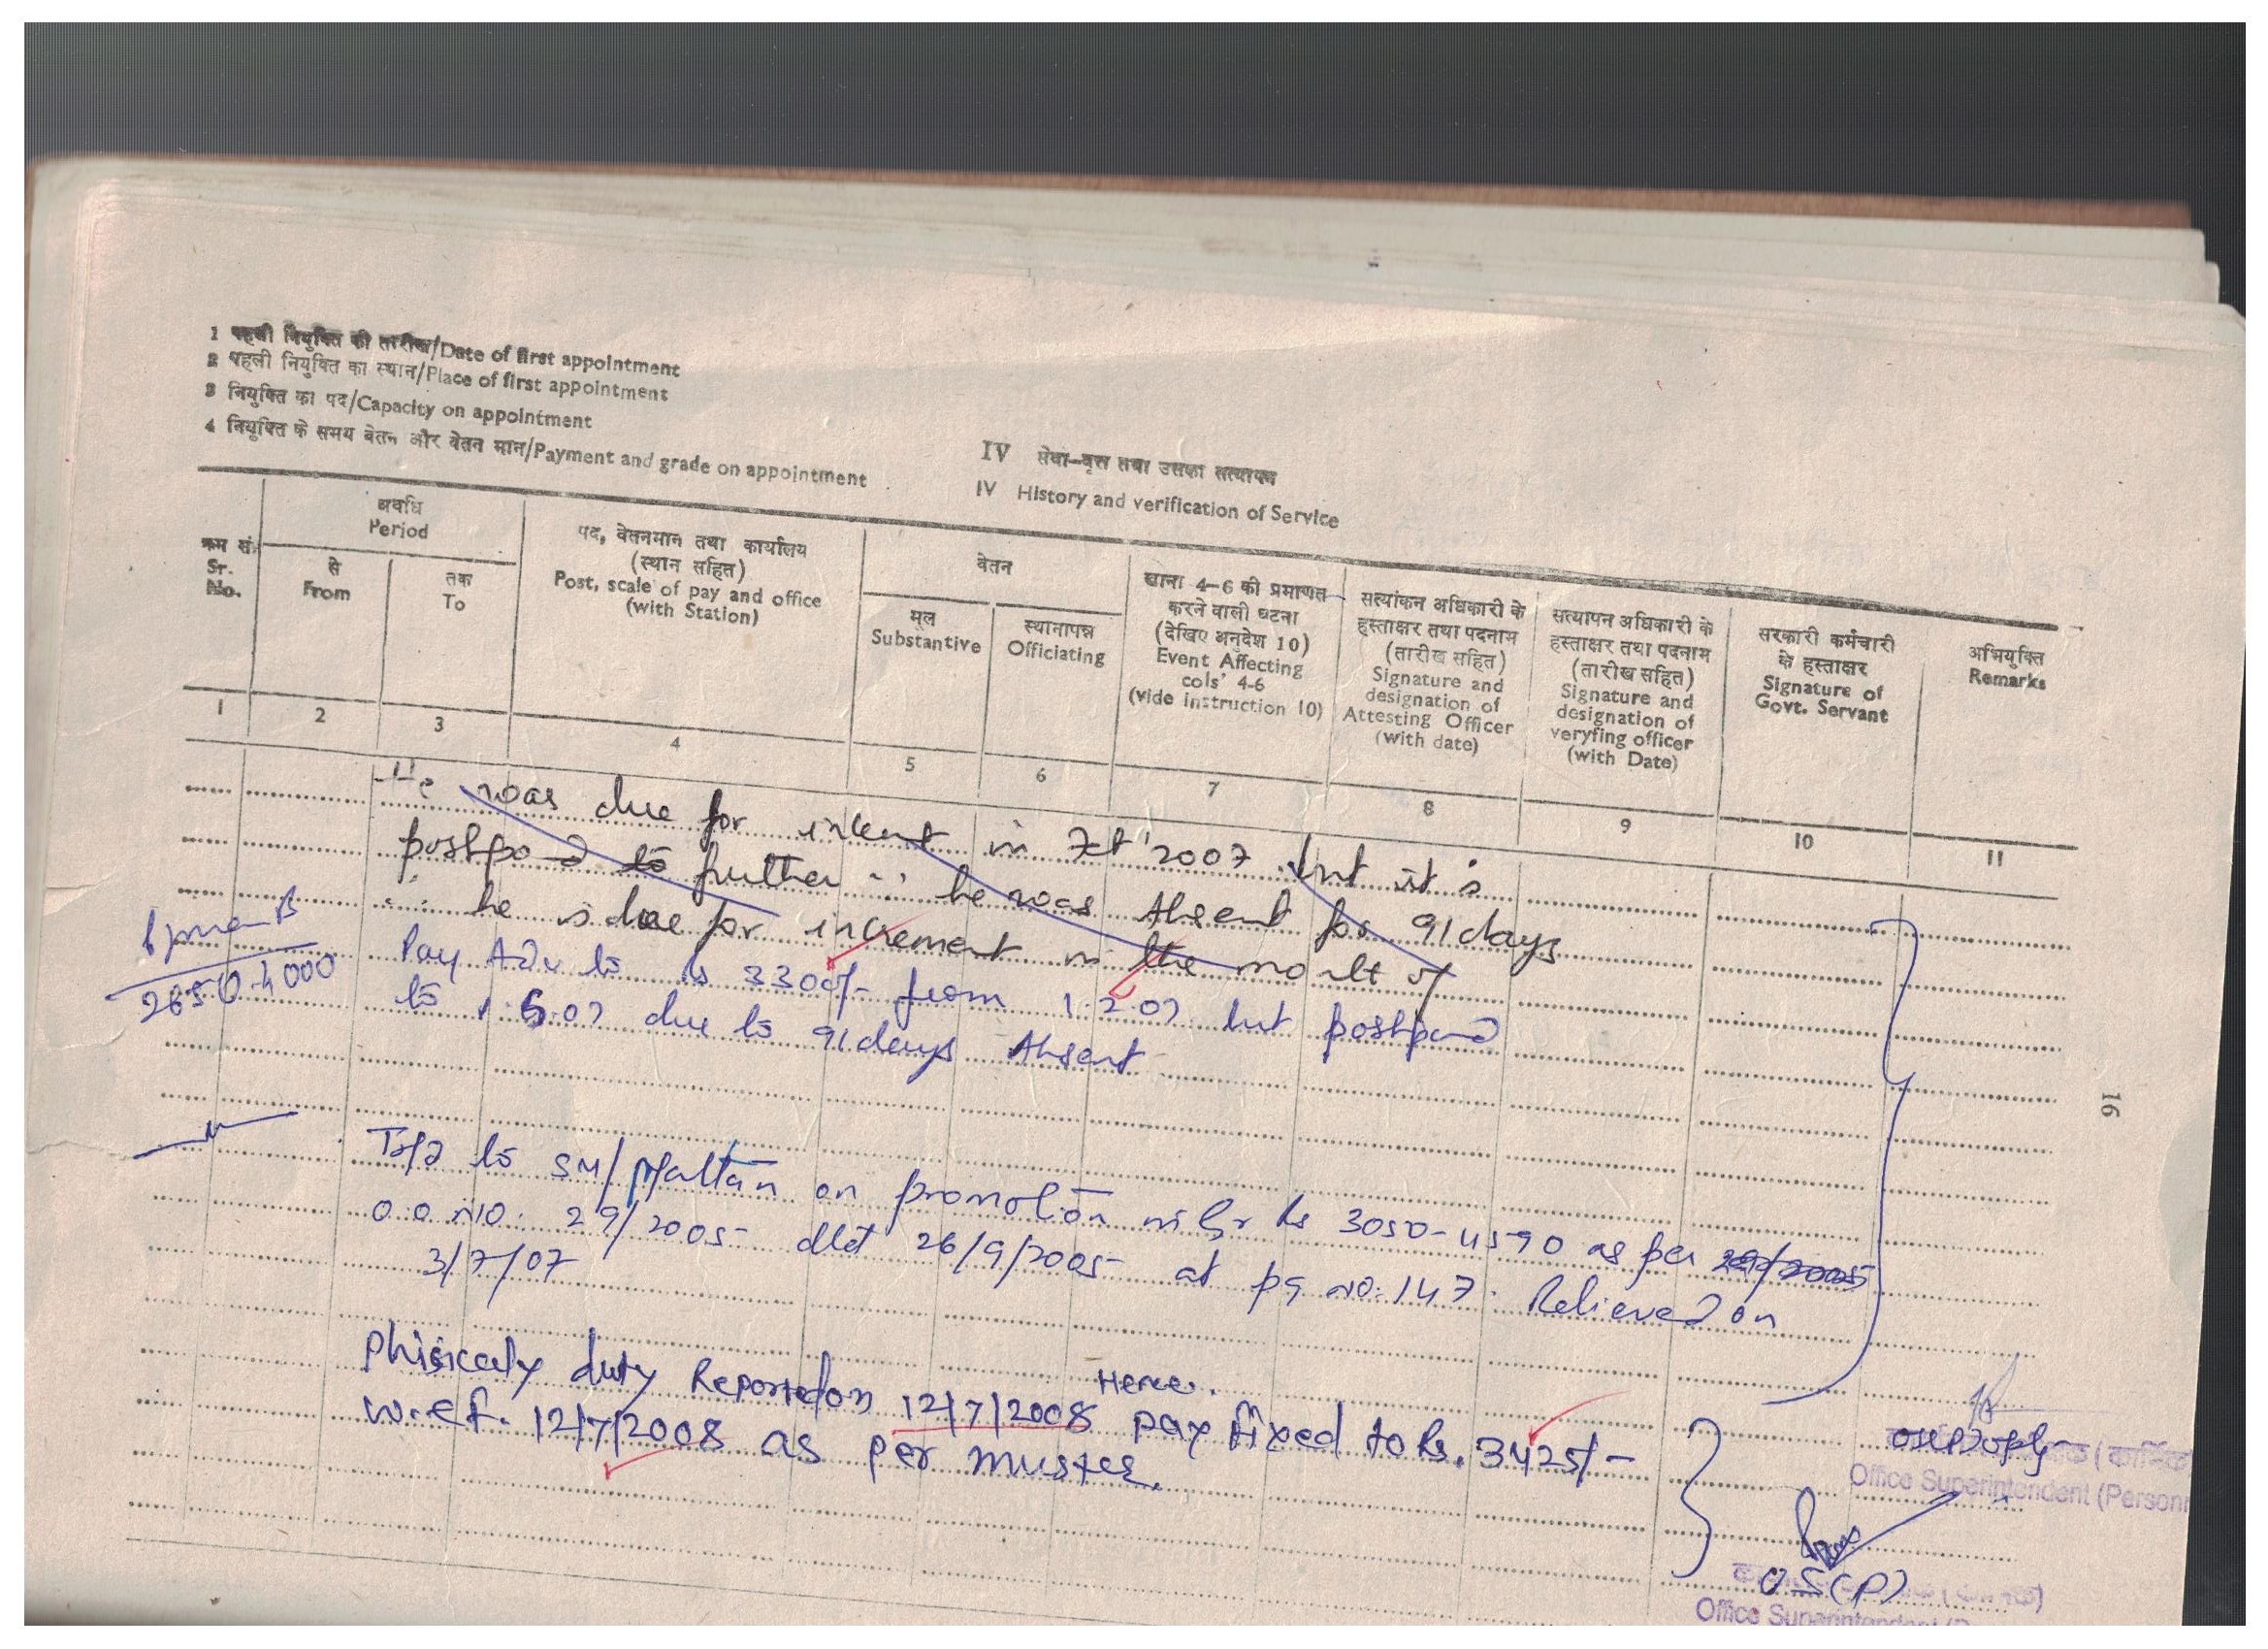 1 पहली नियुक्ति की तारीख/Date of first appointment
2 पहली नियुक्ति का स्थान/Place of first appointment
3 नियुक्ति का पद/Capacity on appointment
4 नियुक्ति के समय वेतन और वेतन मान/Payment and grade on appointment
IV सेवा-वृत्त तथा उसका सत्यापन
IV History and verification of Service
क्रम सं.
Sr.
No.
अवधि
Period
से
From
तक
To
पद, वेतनमान तथा कार्यालय
(स्थान सहित)
Post, scale of pay and office
(with Station)
वेतन
मूल
Substantive
स्थानापन्न
Officiating
खाना 4-6 की प्रमाणत
करने वाली घटना
(देखिए अनुदेश 10)
Event Affecting
cols' 4-6
(vide instruction 10)
सत्यांकन अधिकारी के
हस्ताक्षर तथा पदनाम
(तारीख सहित)
Signature and
designation of
Attesting Officer
(with date)
सत्यापन अधिकारी के
हस्ताक्षर तथा पदनाम
(तारीख सहित)
Signature and
designation of
veryfing officer
(with Date)
सरकारी कर्मचारी
के हस्ताक्षर
Signature of
Govt. Servant
अभियुक्ति
Remarks
1 2 3 4 5 6 7 8 9 10 11
He was due for in 2007 but it is
to further ∵ he was Absent for 91 days
∴ he is due for increment in the month of
2650-4000
Pay Adv to Rs 3300/- from 1.2.07 but
to 1.5.07 due to 91 days Absent
16
Tsfd to SM/ on promotion in Gr Rs 3050-4590 as per 29/2005
O.O. No. 29/2005 dtd 26/9/2005 at pg no. 147. Relieved on
3/7/07
Phisicaly duty Reported on 12/7/2008 Hence. pay fixed to Rs. 3425/-
w.e.f. 12/7/2008 as per muster.
(कार्मिक
Office Superintendent (Personn
OS(P)
Office Superintendent